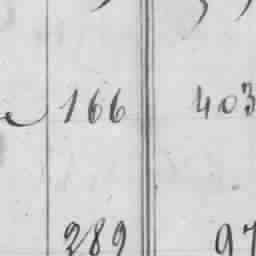 166 403
289 97